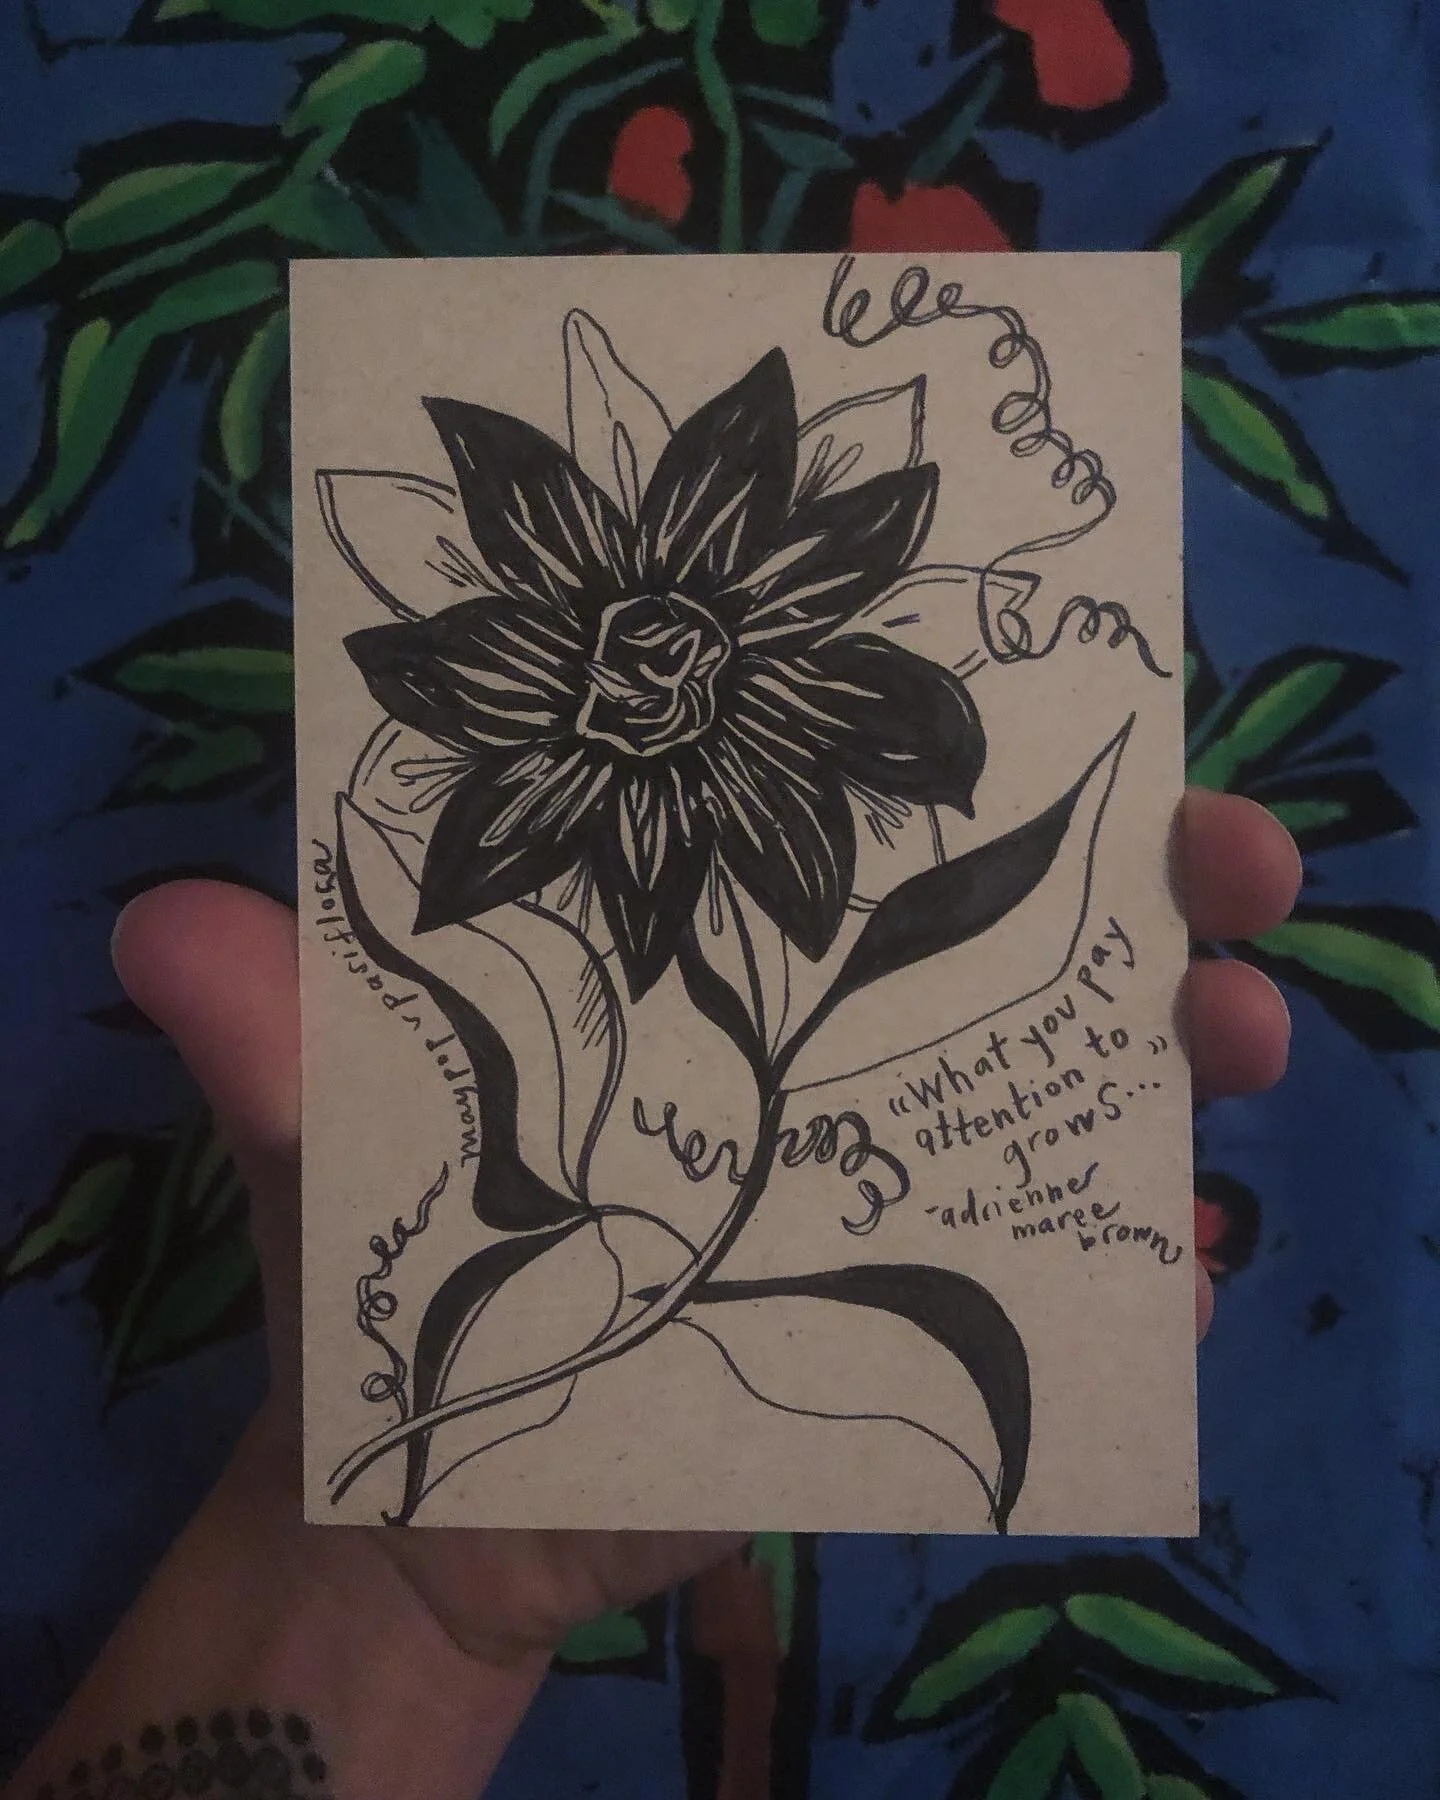 maypop v pasiflora
"What you pay
attention to
grows..."
-adrienne
maree
brown